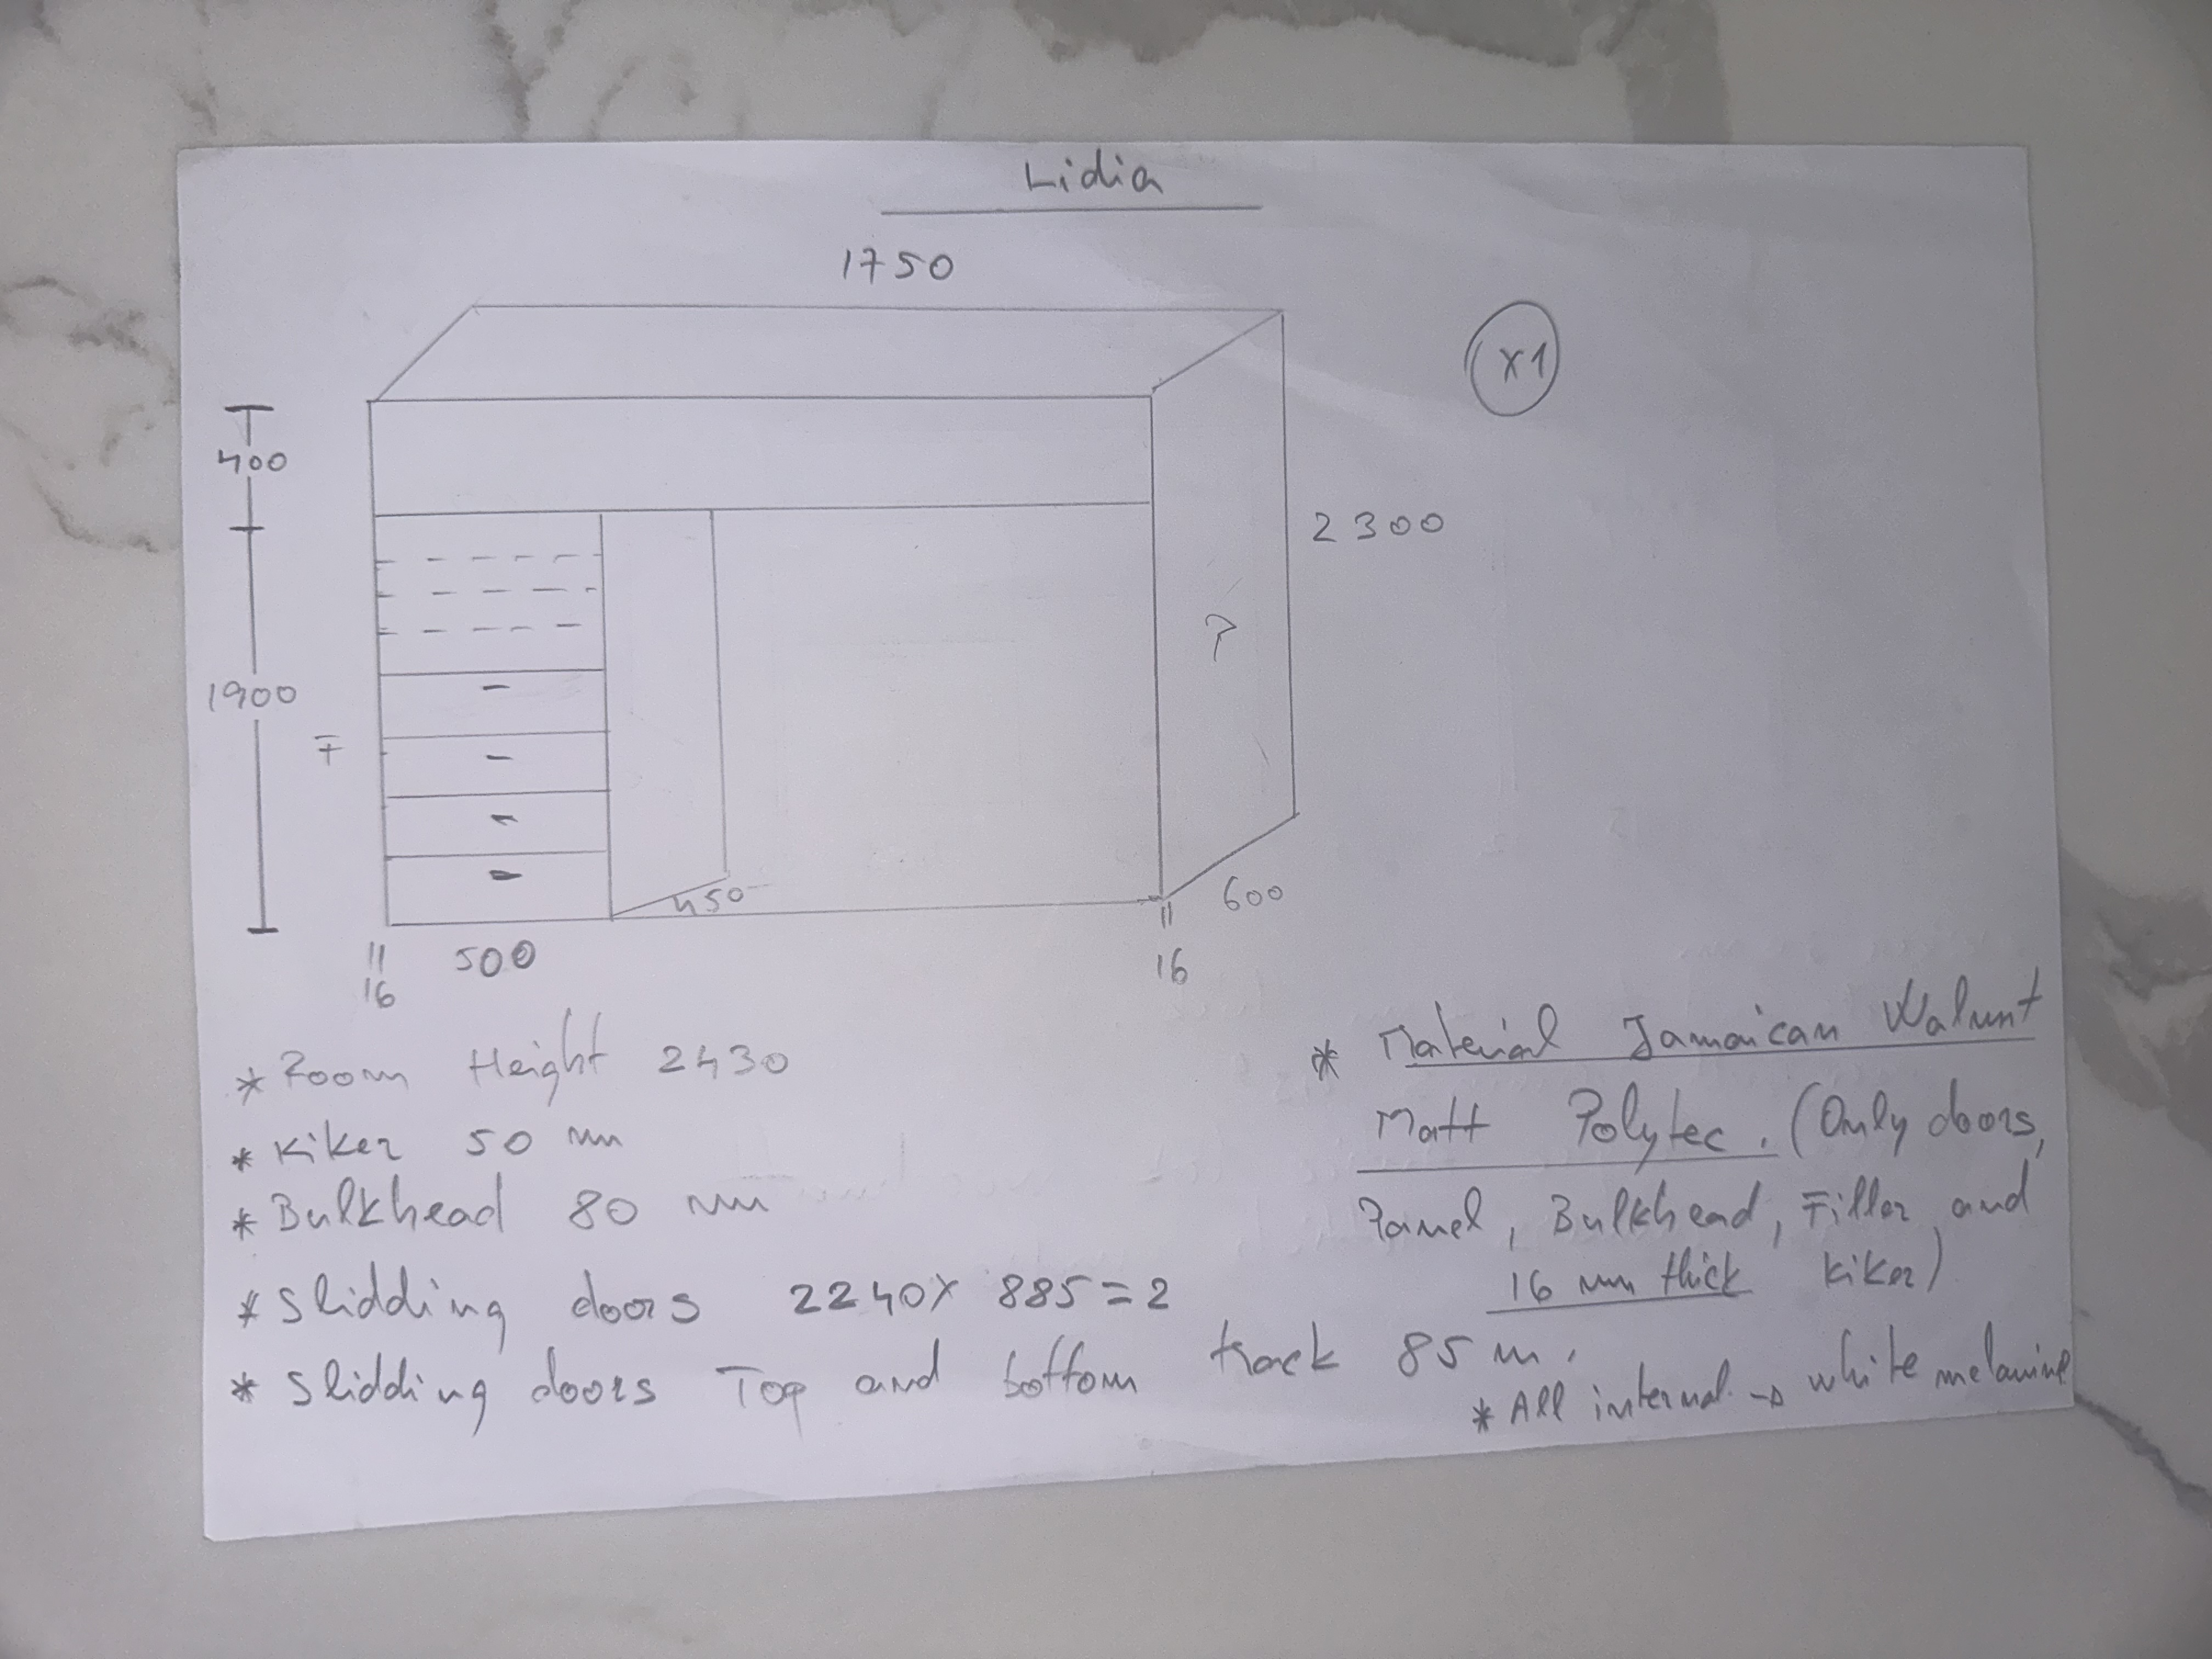 Lidia
1750
X1
400
2300
P
1900
F
450
600
500
16
16
* Room Height 2430
* Kiker 50 mm
* Bulkhead 80 mm
* Slidding doors 2240X 885=2
* Slidding doors Top and bottom track 85 m.
* Material Jamaican Walunt
Matt Polytec. (Only doors,
Panel, Bulkhead, Filler and
16 mm thick Kiker)
* All internal → white melamine